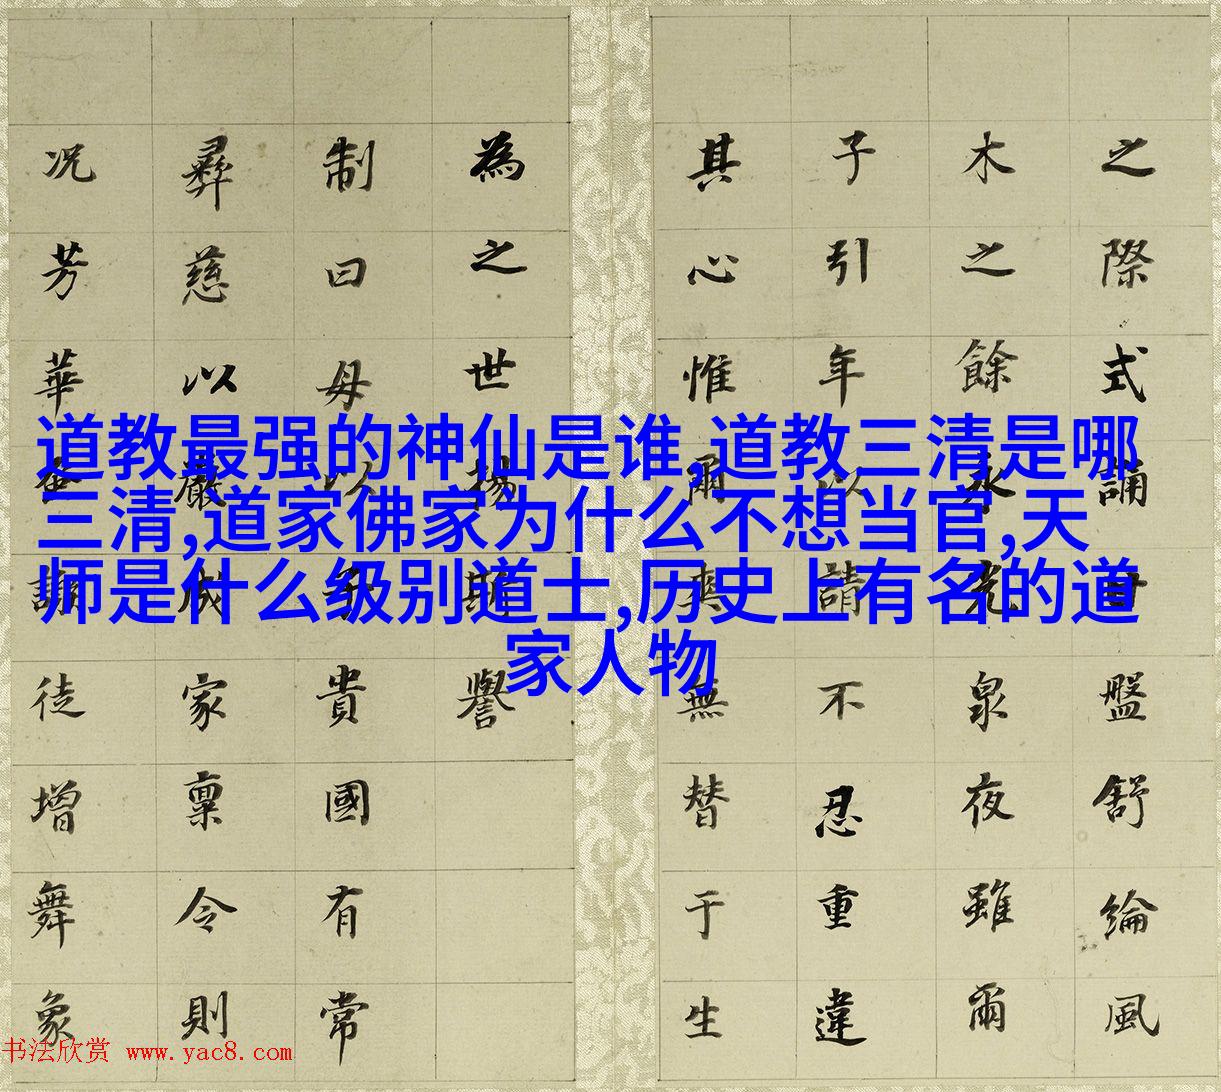 道教最强的神仙是谁,道教三清是哪
三清,道家佛家为什么不想当官,天
师是什么级别道士,历史上有名的道
家人物
之際式誦盤舒綸風
木之餘永光泉夜雖爾
子引年以請不忍重違
其心惟爾無替于生
為之世揚斯譽
制曰母以子貴國有常
彝慈以嚴成家稟令則
况芳華徒增舞象
书法欣赏 www.yac8.com